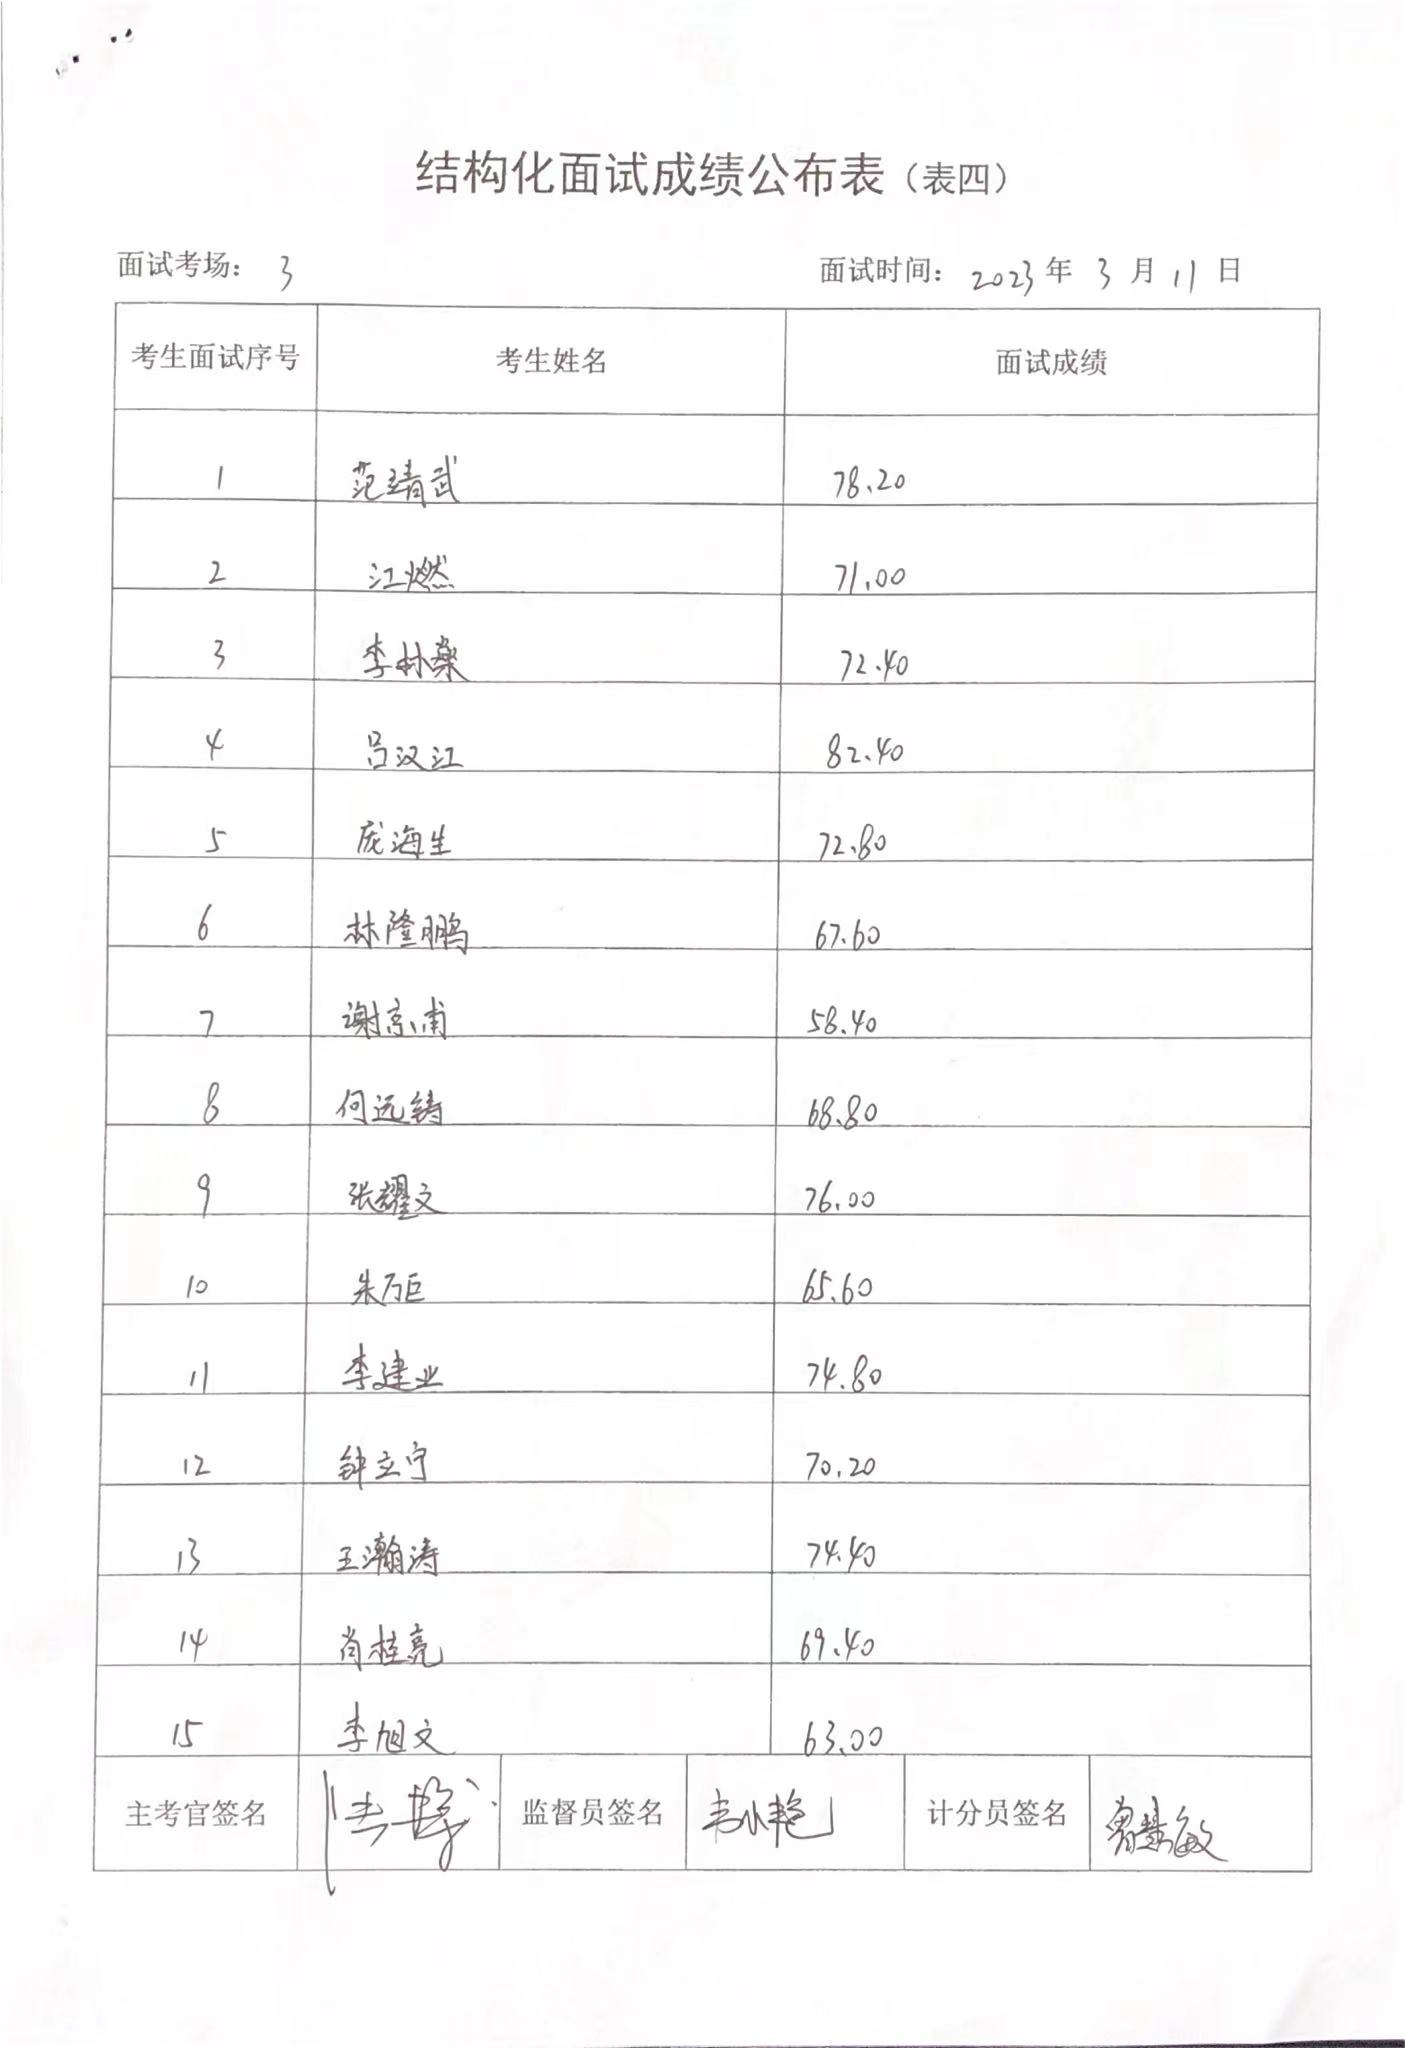 结构化面试成绩公布表（表四）
面试考场： 3 面试时间： 2023 年 3 月 11 日
考生面试序号 考生姓名 面试成绩
1 范靖武 78.20
2 江燃 71.00
3 李林燊 72.40
4 吕汉江 82.40
5 庞海生 72.80
6 林隆鹏 67.60
7 谢京甫 58.40
8 何远铸 68.80
9 张耀文 76.00
10 朱万巨 65.60
11 李建业 74.80
12 钟立宁 70.20
13 王瀚涛 74.40
14 肖桂亮 69.40
15 李旭文 63.00
主考官签名 监督员签名 韦小艳 计分员签名 曾慧敏